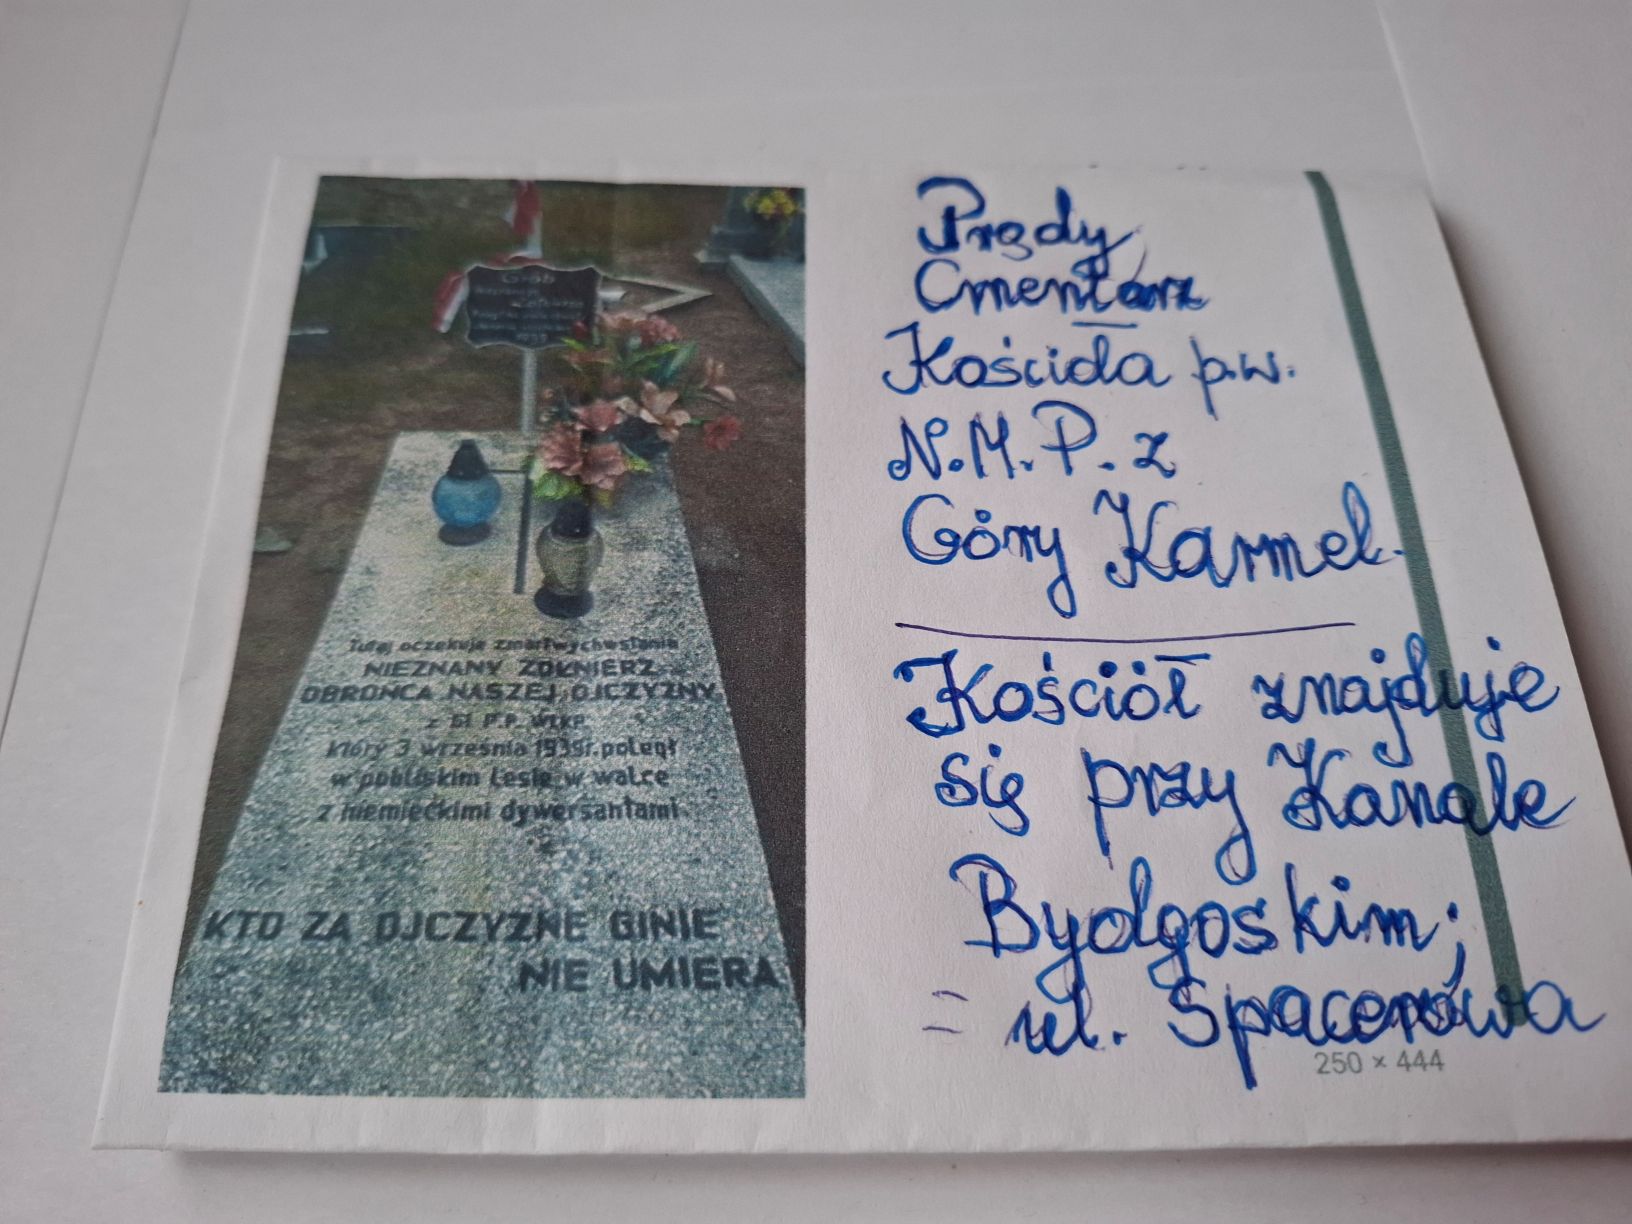 Grób
Żołnierza
1939
Tutaj oczekuje zmartwychwstania
NIEZNANY ŻOŁNIERZ
OBROŃCA NASZEJ OJCZYZNY
z 61 P.P. WLKP.
który 3 września 1939r. poległ
w pobliskim Lesie w walce
z niemieckimi dywersantami
KTO ZA OJCZYZNĘ GINIE
NIE UMIERA
Prądy
Cmentarz
Kościoła p.w.
N.M.P. z
Góry Karmel.
Kościół znajduje
się przy Kanale
Bydgoskim;
= ul. Spacerowa
250 × 444